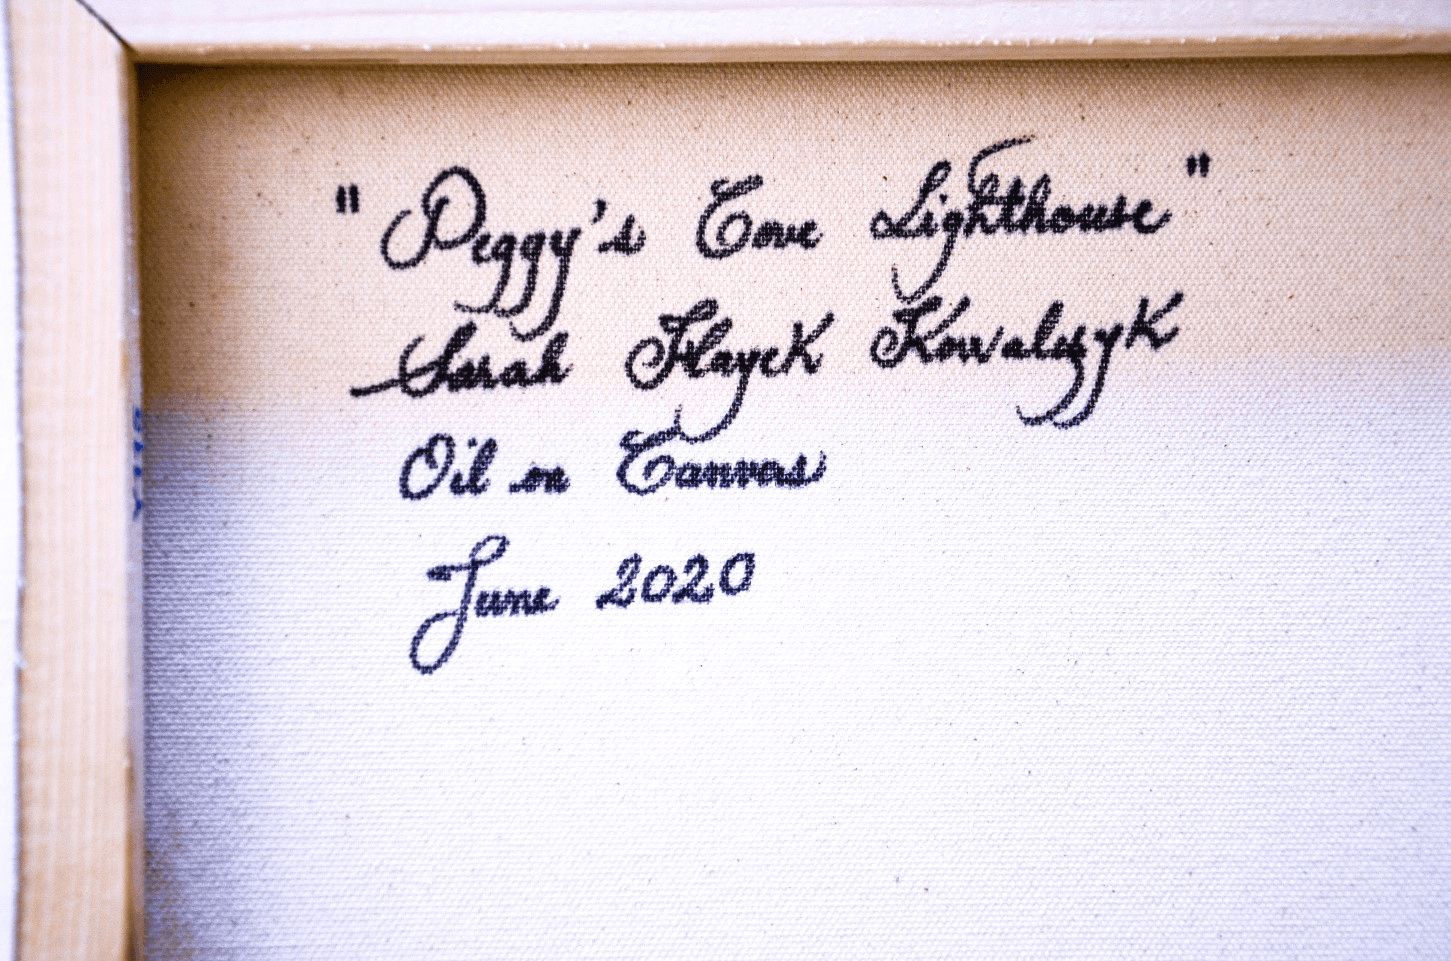 "Peggy's Cove Lighthouse"
Sarah Hayek Kowalczyk
Oil on Canvas
June 2020